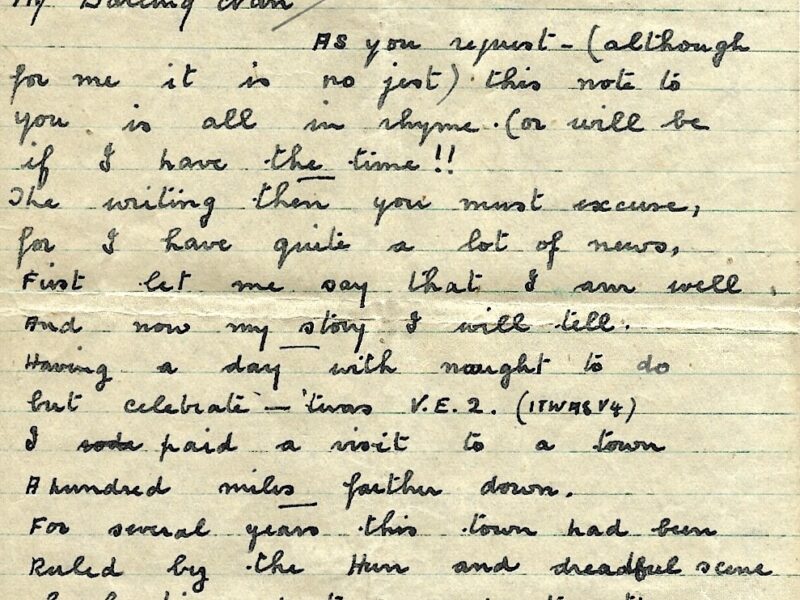 My Darling Nan
As you request - (although
for me it is no jest) this note to
you is all in rhyme. (or will be
if I have the time!!
The writing then you must excuse,
for I have quite a lot of news,
First let me say that I am well.
And now my story I will tell.
Having a day with naught to do
but celebrate - 'twas V.E.2. (IT WAS V4)
I rode paid a visit to a town
A hundred miles farther down.
For several years this town had been
Ruled by the Hun and dreadful scene